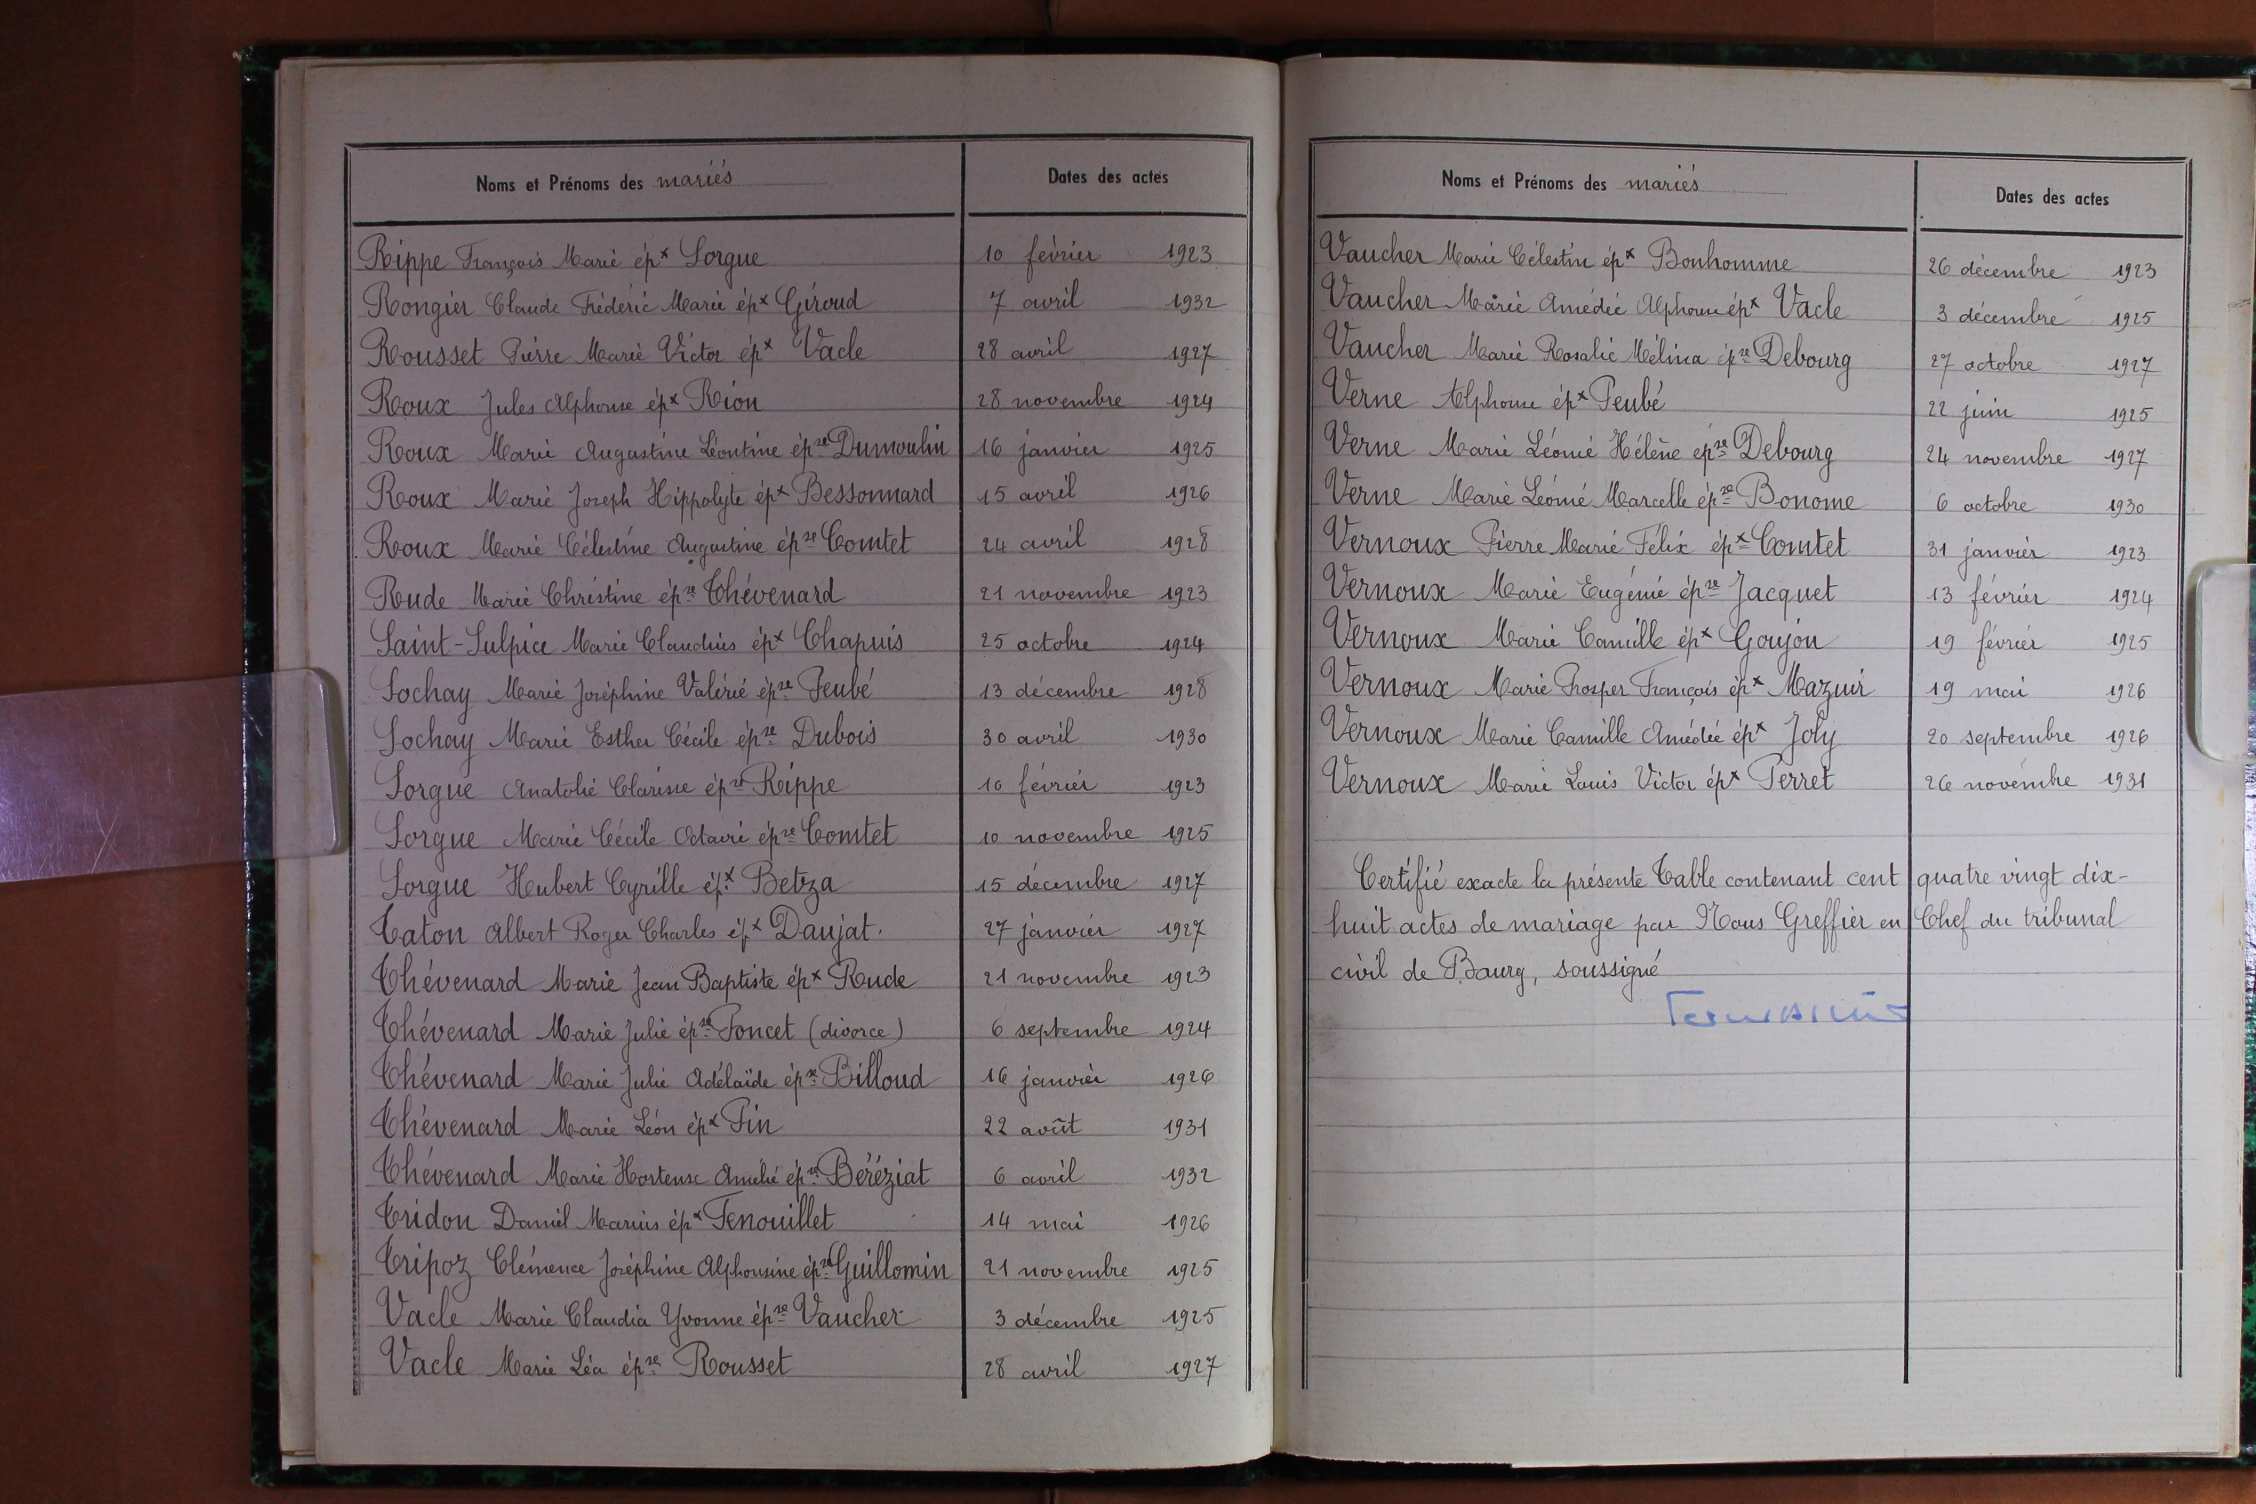 Noms et Prénoms des mariés Dates des actes
Rippe François Marie épx Sorgue 10 février 1923
Rongier Claude Frédéric Marie épx Giroud 7 avril 1932
Rousset Pierre Marie Victor épx Vacle 28 avril 1927
Roux Jules Alphonse épx Rion 28 novembre 1924
Roux Marie Augustine Léontine épse Dumoulin 16 janvier 1925
Roux Marie Joseph Hippolyte épx Bessonnard 15 avril 1926
Roux Marie Célestine Augustine épse Comtet 24 avril 1928
Rude Marie Christine épse Thévenard 21 novembre 1923
Saint-Sulpice Marie Claudius épx Chapuis 25 octobre 1924
Sochay Marie Joséphine Valérie épse Peubé 13 décembre 1928
Sochay Marie Esther Cécile épse Dubois 30 avril 1930
Sorgue Anatolie Clarisse épse Rippe 10 février 1923
Sorgue Marie Cécile Octavie épse Comtet 10 novembre 1925
Sorgue Hubert Cyrille épx Betza 15 décembre 1927
Taton Albert Roger Charles épx Daujat. 27 janvier 1927
Thévenard Marie Jean Baptiste épx Rude 21 novembre 1923
Thévenard Marie Julie épse Poncet (divorce) 6 septembre 1924
Thévenard Marie Julie Adélaïde épse Billoud 16 janvier 1926
Thévenard Marie Léon épx Pin 22 août 1931
Thévenard Marie Hortense Amélie épse Béréziat 6 avril 1932
Tridon Daniel Marius épx Fenouillet 14 mai 1926
Tripoz Clémence Joséphine Alphonsine épse Guillomin 21 novembre 1925
Vacle Marie Claudia Yvonne épse Vaucher 3 décembre 1925
Vacle Marie Léa épse Rousset 28 avril 1927
Noms et Prénoms des mariés Dates des actes
Vaucher Marie Célestin épx Bonhomme 26 décembre 1923
Vaucher Marie Amédée Alphonse épx Vacle 3 décembre 1925
Vaucher Marie Rosalie Mélina épse Debourg 27 octobre 1927
Verne Alphonse épx Peubé 22 juin 1925
Verne Marie Léonie Hélène épse Debourg 24 novembre 1927
Verne Marie Léonie Marcelle épse Bonome 6 octobre 1930
Vernoux Pierre Marie Félix épx Comtet 31 janvier 1923
Vernoux Marie Eugénie épse Jacquet 13 février 1924
Vernoux Marie Camille épx Goujon 19 février 1925
Vernoux Marie Prosper François épx Mazuir 19 mai 1926
Vernoux Marie Camille Amédée épx Joly 20 septembre 1926
Vernoux Marie Louis Victor épx Perret 26 novembre 1931
Certifié exacte la présente Table contenant cent quatre vingt dix-
huit actes de mariage par Nous Greffier en Chef du tribunal
civil de Bourg, soussigné